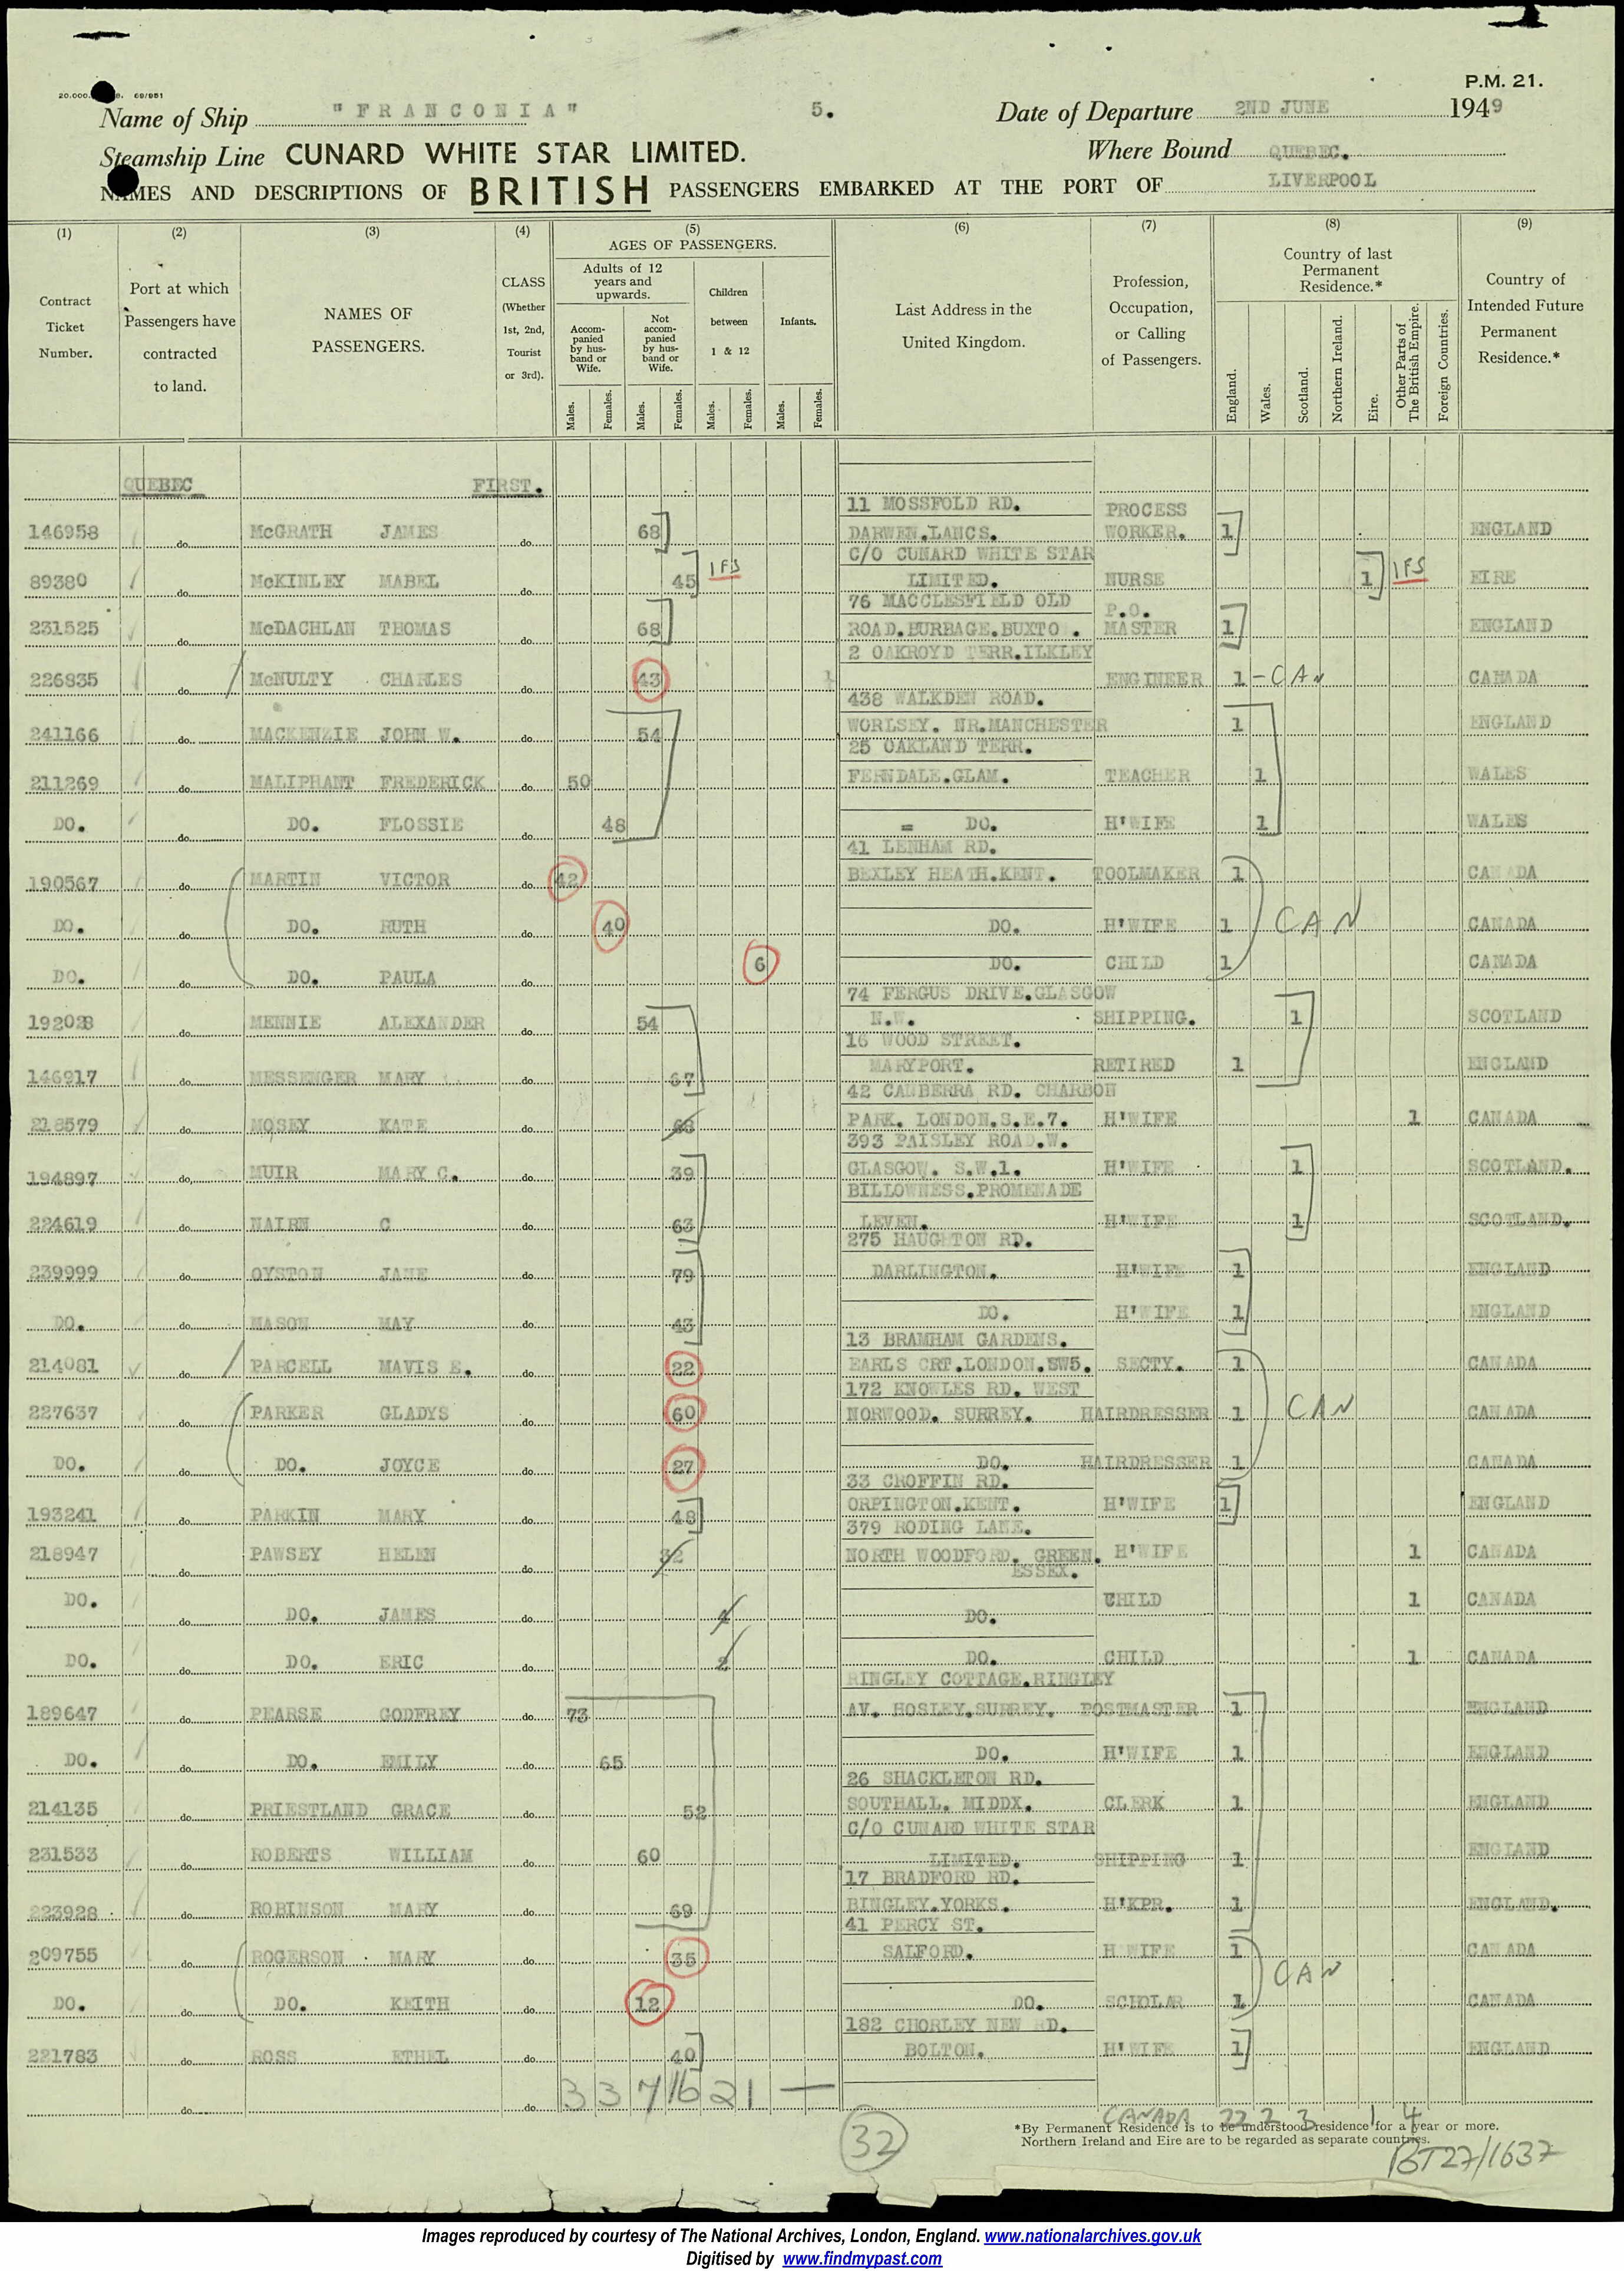 P.M. 21.
20,000. 69/951
Name of Ship "FRANCONIA" 5. Date of Departure 2ND JUNE 1949
Steamship Line CUNARD WHITE STAR LIMITED. Where Bound QUEBEC.
NAMES AND DESCRIPTIONS OF BRITISH PASSENGERS EMBARKED AT THE PORT OF LIVERPOOL
(1) (2) (3) (4) (5) (6) (7) (8) (9)
Contract Ticket Number.
Port at which Passengers have contracted to land.
NAMES OF PASSENGERS.
CLASS (Whether 1st, 2nd, Tourist or 3rd).
AGES OF PASSENGERS.
Adults of 12 years and upwards.
Accompanied by husband or Wife.
Not accompanied by husband or Wife.
Children between 1 & 12
Infants.
Males. Females. Males. Females. Males. Females. Males. Females.
Last Address in the United Kingdom.
Profession, Occupation, or Calling of Passengers.
Country of last Permanent Residence.*
England. Wales. Scotland. Northern Ireland. Eire. Other Parts of The British Empire. Foreign Countries.
Country of Intended Future Permanent Residence.*
QUEBEC FIRST.
146958 do McGRATH JAMES do 68 11 MOSSFOLD RD. DARWEN.LANCS. PROCESS WORKER. 1 ENGLAND
89380 do McKINLEY MABEL do 45 IFS C/O CUNARD WHITE STAR LIMITED. NURSE 1 IFS EIRE
231525 do McDACHLAN THOMAS do 68 76 MACCLESFIELD OLD ROAD.BURBAGE.BUXTO . P.O. MASTER 1 ENGLAND
226835 do McNULTY CHARLES do 43 2 OAKROYD TERR.ILKLEY ENGINEER 1 - CAN CANADA
241166 do MACKENZIE JOHN W. do 54 438 WALKDEN ROAD. WORLSEY. NR.MANCHESTER 1 ENGLAND
211269 do MALIPHANT FREDERICK do 50 25 OAKLAND TERR. FERNDALE.GLAM. TEACHER 1 WALES
DO. do DO. FLOSSIE do 48 = DO. H'WIFE 1 WALES
190567 do MARTIN VICTOR do 42 41 LENHAM RD. BEXLEY HEATH.KENT. TOOLMAKER 1 CANADA
DO. do DO. RUTH do 40 DO. H'WIFE 1 CAN CANADA
DO. do DO. PAULA do 6 DO. CHILD 1 CANADA
192028 do MENNIE ALEXANDER do 54 74 FERGUS DRIVE.GLASGOW N.W. SHIPPING. 1 SCOTLAND
146917 do MESSENGER MARY do 67 16 WOOD STREET. MARYPORT. RETIRED 1 ENGLAND
218579 do MOSEY KATE do 42 CANBERRA RD. CHARBON PARK. LONDON.S.E.7. H'WIFE 1 CANADA
194897 do MUIR MARY C. do 39 393 PAISLEY ROAD.W. GLASGOW. S.W.1. H'WIFE 1 SCOTLAND.
224619 do NAIRN C do 63 BILLOWNESS.PROMENADE LEVEN. H'WIFE 1 SCOTLAND.
239999 do OYSTON JANE do 79 275 HAUGHTON RD. DARLINGTON. H'WIFE 1 ENGLAND
DO. do MASON MAY do 43 DO. H'WIFE 1 ENGLAND
214081 do PARCELL MAVIS E. do 22 13 BRAMHAM GARDENS. EARLS CRT.LONDON.SW5. SECTY. 1 CANADA
227637 do PARKER GLADYS do 60 172 KNOWLES RD. WEST NORWOOD. SURREY. HAIRDRESSER 1 CAN CANADA
DO. do DO. JOYCE do 27 DO. HAIRDRESSER 1 CANADA
193241 do PARKIN MARY do 48 33 CROFFIN RD. ORPINGTON.KENT. H'WIFE 1 ENGLAND
218947 do PAWSEY HELEN do 32 379 RODING LANE. NORTH WOODFORD. GREEN. ESSEX. H'WIFE 1 CANADA
DO. do DO. JAMES do 4 DO. CHILD 1 CANADA
DO. do DO. ERIC do 2 DO. CHILD 1 CANADA
189647 do PEARSE GODFREY do 73 RINGLEY COTTAGE.RINGLEY AV. HOSLEY.SURREY. POSTMASTER 1 ENGLAND
DO. do DO. EMILY do 65 DO. H'WIFE 1 ENGLAND
214135 do PRIESTLAND GRACE do 52 26 SHACKLETON RD. SOUTHALL. MIDDX. CLERK 1 ENGLAND
231533 do ROBERTS WILLIAM do 60 C/O CUNARD WHITE STAR LIMITED. SHIPPING 1 ENGLAND
223928 do ROBINSON MARY do 69 17 BRADFORD RD. BINGLEY.YORKS. H'KPR. 1 ENGLAND.
209755 do ROGERSON MARY do 35 41 PERCY ST. SALFORD. H WIFE 1 CAN CANADA
DO. do DO. KEITH do 12 DO. SCHOLAR 1 CANADA
221783 do ROSS ETHEL do 40 182 CHORLEY NEW RD. BOLTON. H'WIFE 1 ENGLAND
do do 3 3 7 16 2 1 —
CANADA 22 2 3 1 4
32
*By Permanent Residence is to be understood residence for a year or more.
Northern Ireland and Eire are to be regarded as separate countries.
BT27/1637
Images reproduced by courtesy of The National Archives, London, England. www.nationalarchives.gov.uk
Digitised by www.findmypast.com